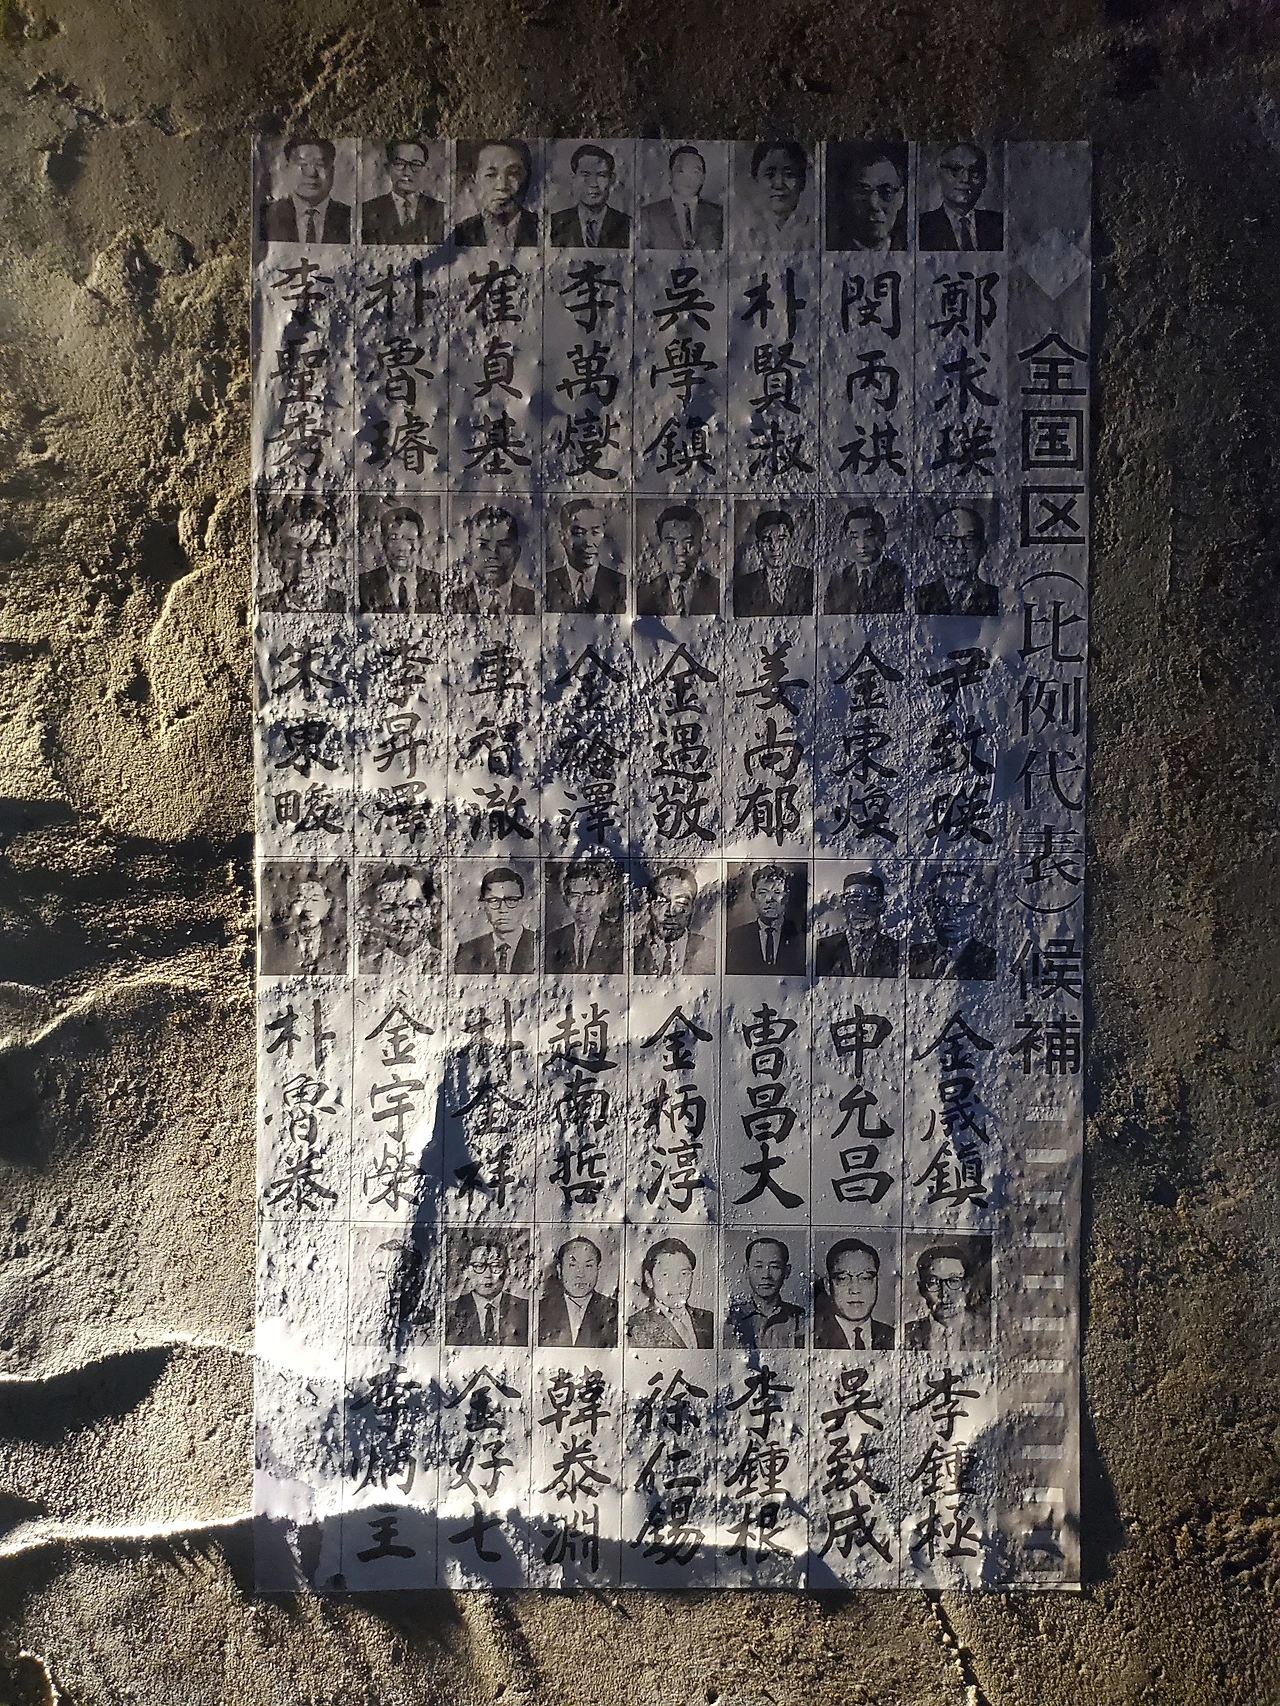 全国区(比例代表)候補
鄭求瑛
閔丙祺
朴賢淑
吳學鎮
李萬燮
崔貞基
朴魯璿
李聖秀
尹致暎
金東煥
姜尚郁
金遇敬
金裕澤
車智澈
李昇澤
宋東畯
金晟鎮
申允昌
曺昌大
金柄淳
趙南哲
朴全祥
金宇榮
朴魯泰
李鍾極
吳致成
李鍾根
徐仁錫
韓泰淵
金好七
李炳王